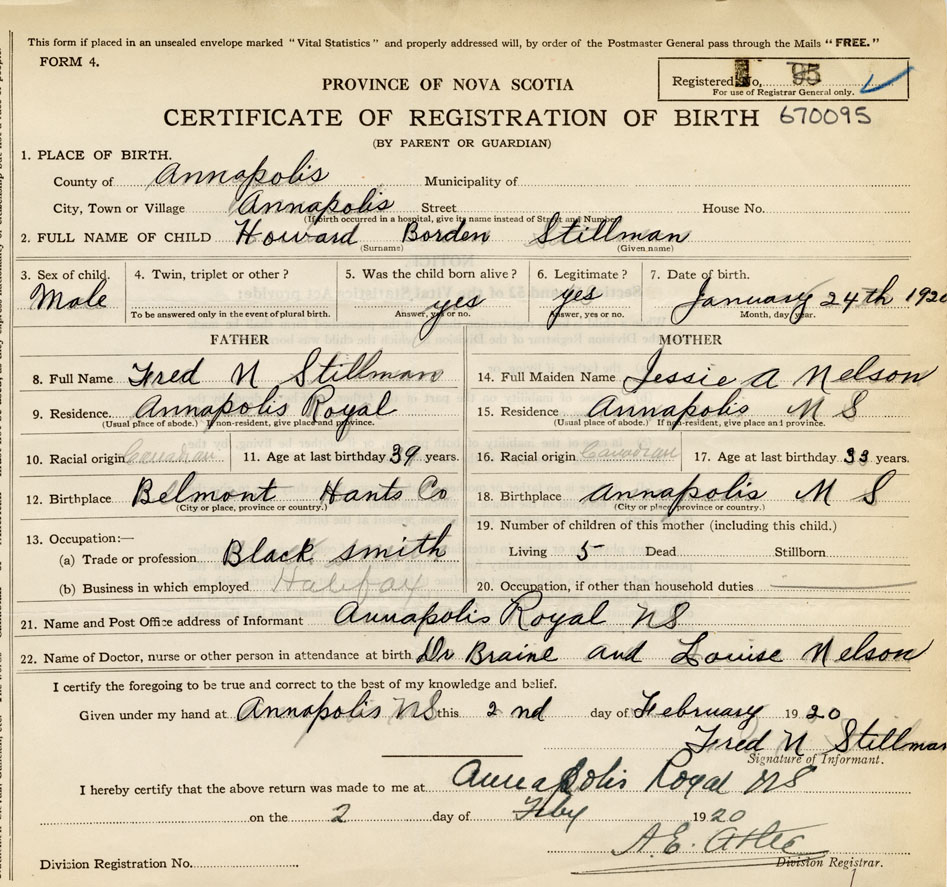 This form if placed in an unsealed envelope marked "Vital Statistics" and properly addressed will, by order of the Postmaster General pass through the Mails "FREE."
FORM 4.
Registered No. 95
For use of Registrar General only.
PROVINCE OF NOVA SCOTIA
CERTIFICATE OF REGISTRATION OF BIRTH 670095
(BY PARENT OR GUARDIAN)
1. PLACE OF BIRTH.
County of Annapolis Municipality of
City, Town or Village Annapolis Street House No.
(If birth occurred in a hospital, give its name instead of Street and Number)
2. FULL NAME OF CHILD Howard Borden Stillman
(Surname) (Given name)
3. Sex of child. 4. Twin, triplet or other? 5. Was the child born alive? 6. Legitimate? 7. Date of birth.
Male yes yes January 24th 1920
To be answered only in the event of plural birth. Answer, yes or no. Answer, yes or no. Month, day year.
FATHER MOTHER
8. Full Name Fred N Stillman 14. Full Maiden Name Jessie A Nelson
9. Residence. Annapolis Royal 15. Residence Annapolis N S
(Usual place of abode.) If non-resident, give place and province. (Usual place of abode.) If non-resident, give place and province.
10. Racial origin Canadian 11. Age at last birthday 39 years. 16. Racial origin Canadian 17. Age at last birthday 33 years.
12. Birthplace Belmont Hants Co 18. Birthplace Annapolis N S
(City or place, province or country.) (City or place, province or country.)
13. Occupation:— 19. Number of children of this mother (including this child.)
(a) Trade or profession Black smith Living 5 Dead Stillborn
(b) Business in which employed Halifax 20. Occupation, if other than household duties
21. Name and Post Office address of Informant Annapolis Royal NS
22. Name of Doctor, nurse or other person in attendance at birth Dr Braine and Louise Nelson
I certify the foregoing to be true and correct to the best of my knowledge and belief.
Given under my hand at Annapolis NS this 2nd day of February 1920
Fred N Stillman
Signature of Informant.
I hereby certify that the above return was made to me at Annapolis Royal NS
on the 2 day of Feby 1920
A.E.
Division Registration No. Division Registrar.